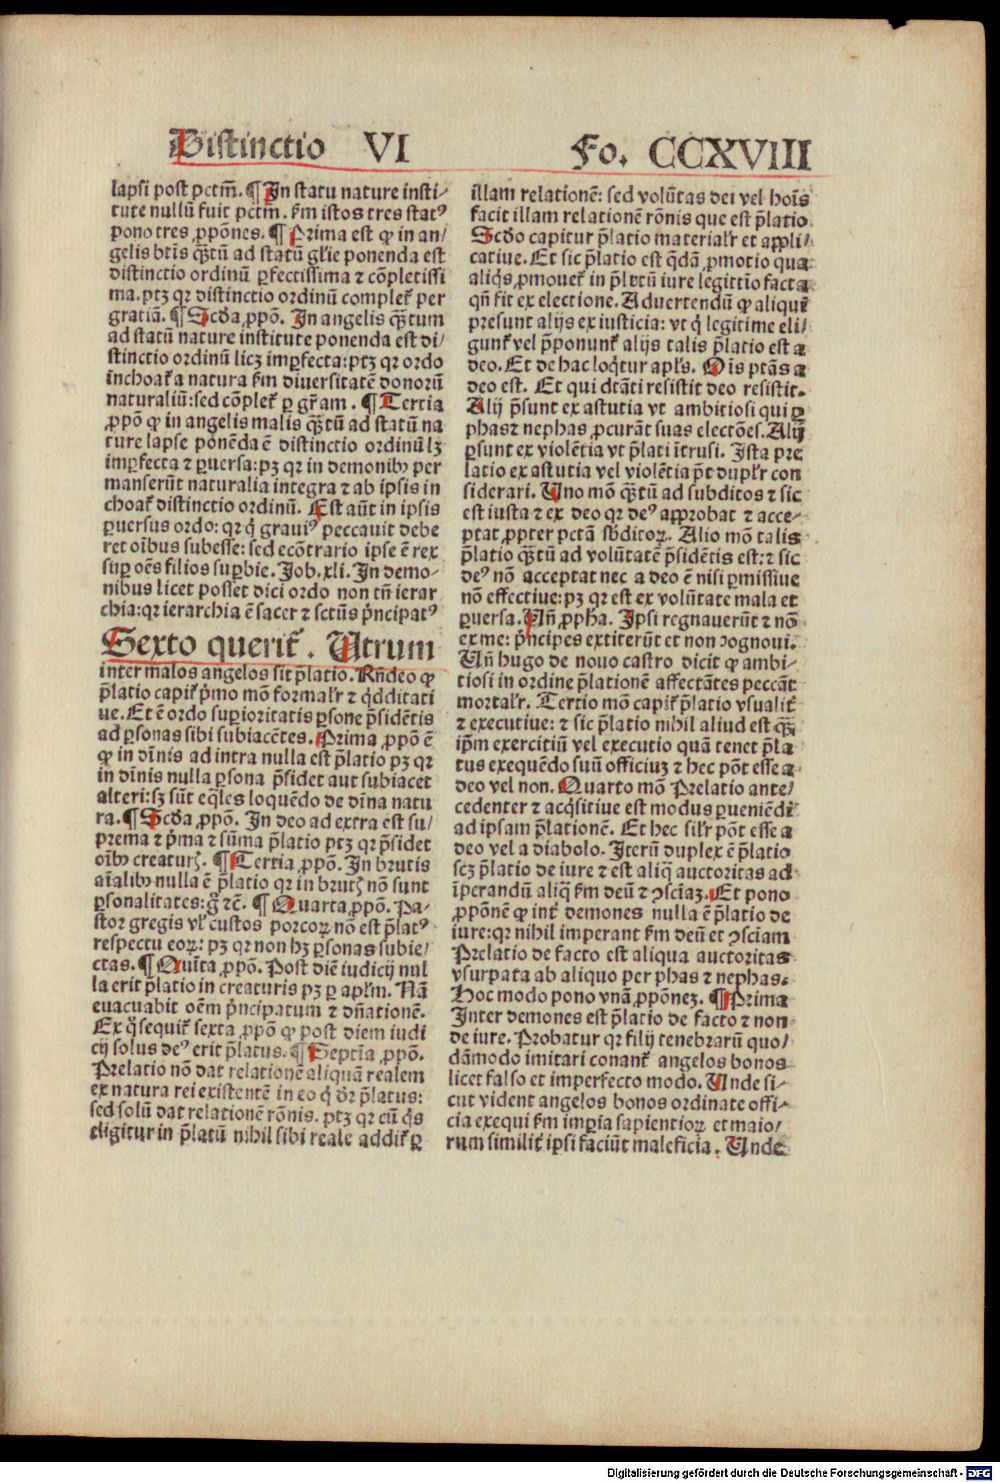 Distinctio VI Fo. CCXVIII
lapsi post pctm̄. ¶ In statu nature insti/
tute nullū fuit pctm̄. ẜm istos tres statꝰ
pono tres ꝓpōnes. ¶ Prima est ꝙ in an/
gelis btīs qꝫtū ad statū glīe ponenda est
distinctio ordinū ꝑfectissima ⁊ cōpletissi
ma. ptꝫ qꝛ distinctio ordinū complet᷑ per
gratiā. ¶ Scd̄a ꝓpō. In angelis qꝫtum
ad statū nature institute ponenda est di/
stinctio ordinū licꝫ imꝑfecta: ptꝫ qꝛ ordo
inchoat᷑ a natura ẜm diuersitatē donorū
naturaliū: sed cōplet᷑ ꝑ gr̄am. ¶ Tertia
ꝓpō ꝙ in angelis malis qꝫtū ad statū na
ture lapse ponēda ē distinctio ordinū lꝫ
imꝑfecta ⁊ ꝑuersa: pꝫ qꝛ in demonibꝰ per
manserūt naturalia integra ⁊ ab ipsis in
choat᷑ distinctio ordinū. Est aūt in ipsis
ꝑuersus ordo: qꝛ q̇ grauiꝰ peccauit debe
ret oībus subesse: sed ecōtrario ipse ē rex
suꝑ oēs filios suꝑbie. Job. xli. In demo-
nibus licet posset dici ordo non tn̄ ierar
chia: qꝛ ierarchia ē sacer ⁊ sctūs pͥncipatꝰ
Sexto querit᷑. Utrum
inter malos angelos sit p̄latio. Rn̄deo ꝙ
p̄latio capit᷑ pͥmo mō formalr̄ ⁊ q̇dditati
ue. Et ē ordo suꝑioritatis ꝑsone p̄sidētis
ad ꝑsonas sibi subiacētes. Prima ꝓpō ē
ꝙ in diuīs ad intra nulla est p̄latio pꝫ qꝛ
in diuīs nulla ꝑsona p̄sidet aut subiacet
alteri: sꝫ sūt eq̄les loquēdo de diuīa natu
ra. ¶ Scd̄a ꝓpō. In deo ad extra est su/
prema ⁊ pͥma ⁊ sūma p̄latio ptꝫ qꝛ p̄sidet
oībꝰ creaturꝭ. ¶ Tertia ꝓpō. In brutis
aīalibꝰ nulla ē p̄latio qꝛ in brutꝭ nō sunt
ꝑsonalitates: g̊ rc̄. ¶ Quarta ꝓpō. Pa-
stor gregis vl̄ custos porcoꝝ nō est p̄latꝰ
respectu eoꝝ: pꝫ qꝛ non hꝫ ꝑsonas subie/
ctas. ¶ Quīta ꝓpō. Post diē iudicij nul
la erit p̄latio in creaturis pꝫ ꝑ apl̄m. Nā
euacuabit oēm pͥncipatum ⁊ dn̄ationē.
Ex q̊ sequit᷑ sexta ꝓpō ꝙ post diem iudi
cij solus deꝰ erit p̄latus. ¶ Septīa ꝓpō.
Prelatio nō dat relationē aliquā realem
ex natura rei existentē in eo q̇ dr̄ p̄latus:
sed solū dat relationē rōnis. ptꝫ qꝛ cū q̇s
eligitur in p̄latū nihil sibi reale addit᷑ ꝑ
illam relationē: sed volūtas dei vel hoīs
facit illam relationē rōnis que est p̄latio.
Scd̄o capitur p̄latio materialr̄ et appli/
catiue. Et sic p̄latio est q̄dā ꝓmotio qua
aliq̇s ꝓmouet᷑ in p̄latū iure legittīo facta
qn̄ fit ex electione. Aduertendū ꝙ aliqui
presunt alijs ex iusticia: vt q̇ legitime eli/
gunt᷑ vel p̄ponunt᷑ alijs talis p̄latio est a
deo. Et de hac loq̇tur apl̄s. Oīs ptās a
deo est. Et qui dtāti resistit deo resistit.
Alij p̄sunt ex astutia vt ambitiosi qui ꝑ
phas ⁊ nephas ꝓcurāt suas electōes. Alij
p̄sunt ex violētia vt p̄lati ītrusi. Ista pre
latio ex astutia vel violētia pōt duplr̄ con
siderari. Uno mō qꝫtū ad subditos ⁊ sic
est iusta ⁊ ex deo qꝛ deꝰ approbat ⁊ acce-
ptat ꝓpter pctā sb̄ditoꝝ. Alio mō talis
p̄latio qꝫtū ad volūtatē p̄sidētis est: ⁊ sic
deꝰ nō acceptat nec a deo ē nisi ꝑmissiue
nō effectiue: pꝫ qꝛ est ex volūtate mala et
ꝑuersa. Un̄ ꝓpha. Ipsi regnauerūt ⁊ nō
ex me: pͥncipes extiterūt et non ꝯognoui.
Un̄ hugo de nouo castro dicit ꝙ ambi-
tiosi in ordine p̄lationē affectātes peccāt
mortalr̄. Tertio mō capit᷑ p̄latio vsualit᷑
⁊ executiue: ⁊ sic p̄latio nihil aliud est qꝫ
ip̄m exercitiū vel executio quā tenet p̄la
tus exequēdo suū officiuꝫ ⁊ hec pōt esse a
deo vel non. Quarto mō Prelatio ante/
cedenter ⁊ acq̇sitiue est modus ꝑueniēdi
ad ipsam p̄lationē. Et hec silr̄ pōt esse a
deo vel a diabolo. Iterū duplex ē p̄latio
scꝫ p̄latio de iure ⁊ est aliq̄ auctoritas ad
īperandū aliq̇ ẜm deū ⁊ ꝯsciāꝫ. Et pono
ꝓpōnē ꝙ int᷑ demones nulla ē p̄latio de
iure: qꝛ nihil imperant ẜm deū et ꝯsciam
Prelatio de facto est aliqua auctoritas
vsurpata ab aliquo per phas ⁊ nephas.
Hoc modo pono vnā ꝓpōneꝫ. ¶ Prima
Inter demones est p̄latio de facto ⁊ non
de iure. Probatur qꝛ filij tenebrarū quo/
dāmodo imitari conant᷑ angelos bonos
licet falso et imperfecto modo. Unde si-
cut vident angelos bonos ordinate offi-
cia exequi ẜm imꝑia sapientioꝝ et maio/
rum similit᷑ ipsi faciūt maleficia. Unde
Digitalisierung gefördert durch die Deutsche Forschungsgemeinschaft - DFG